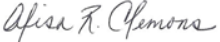 Alisa R. Clemons